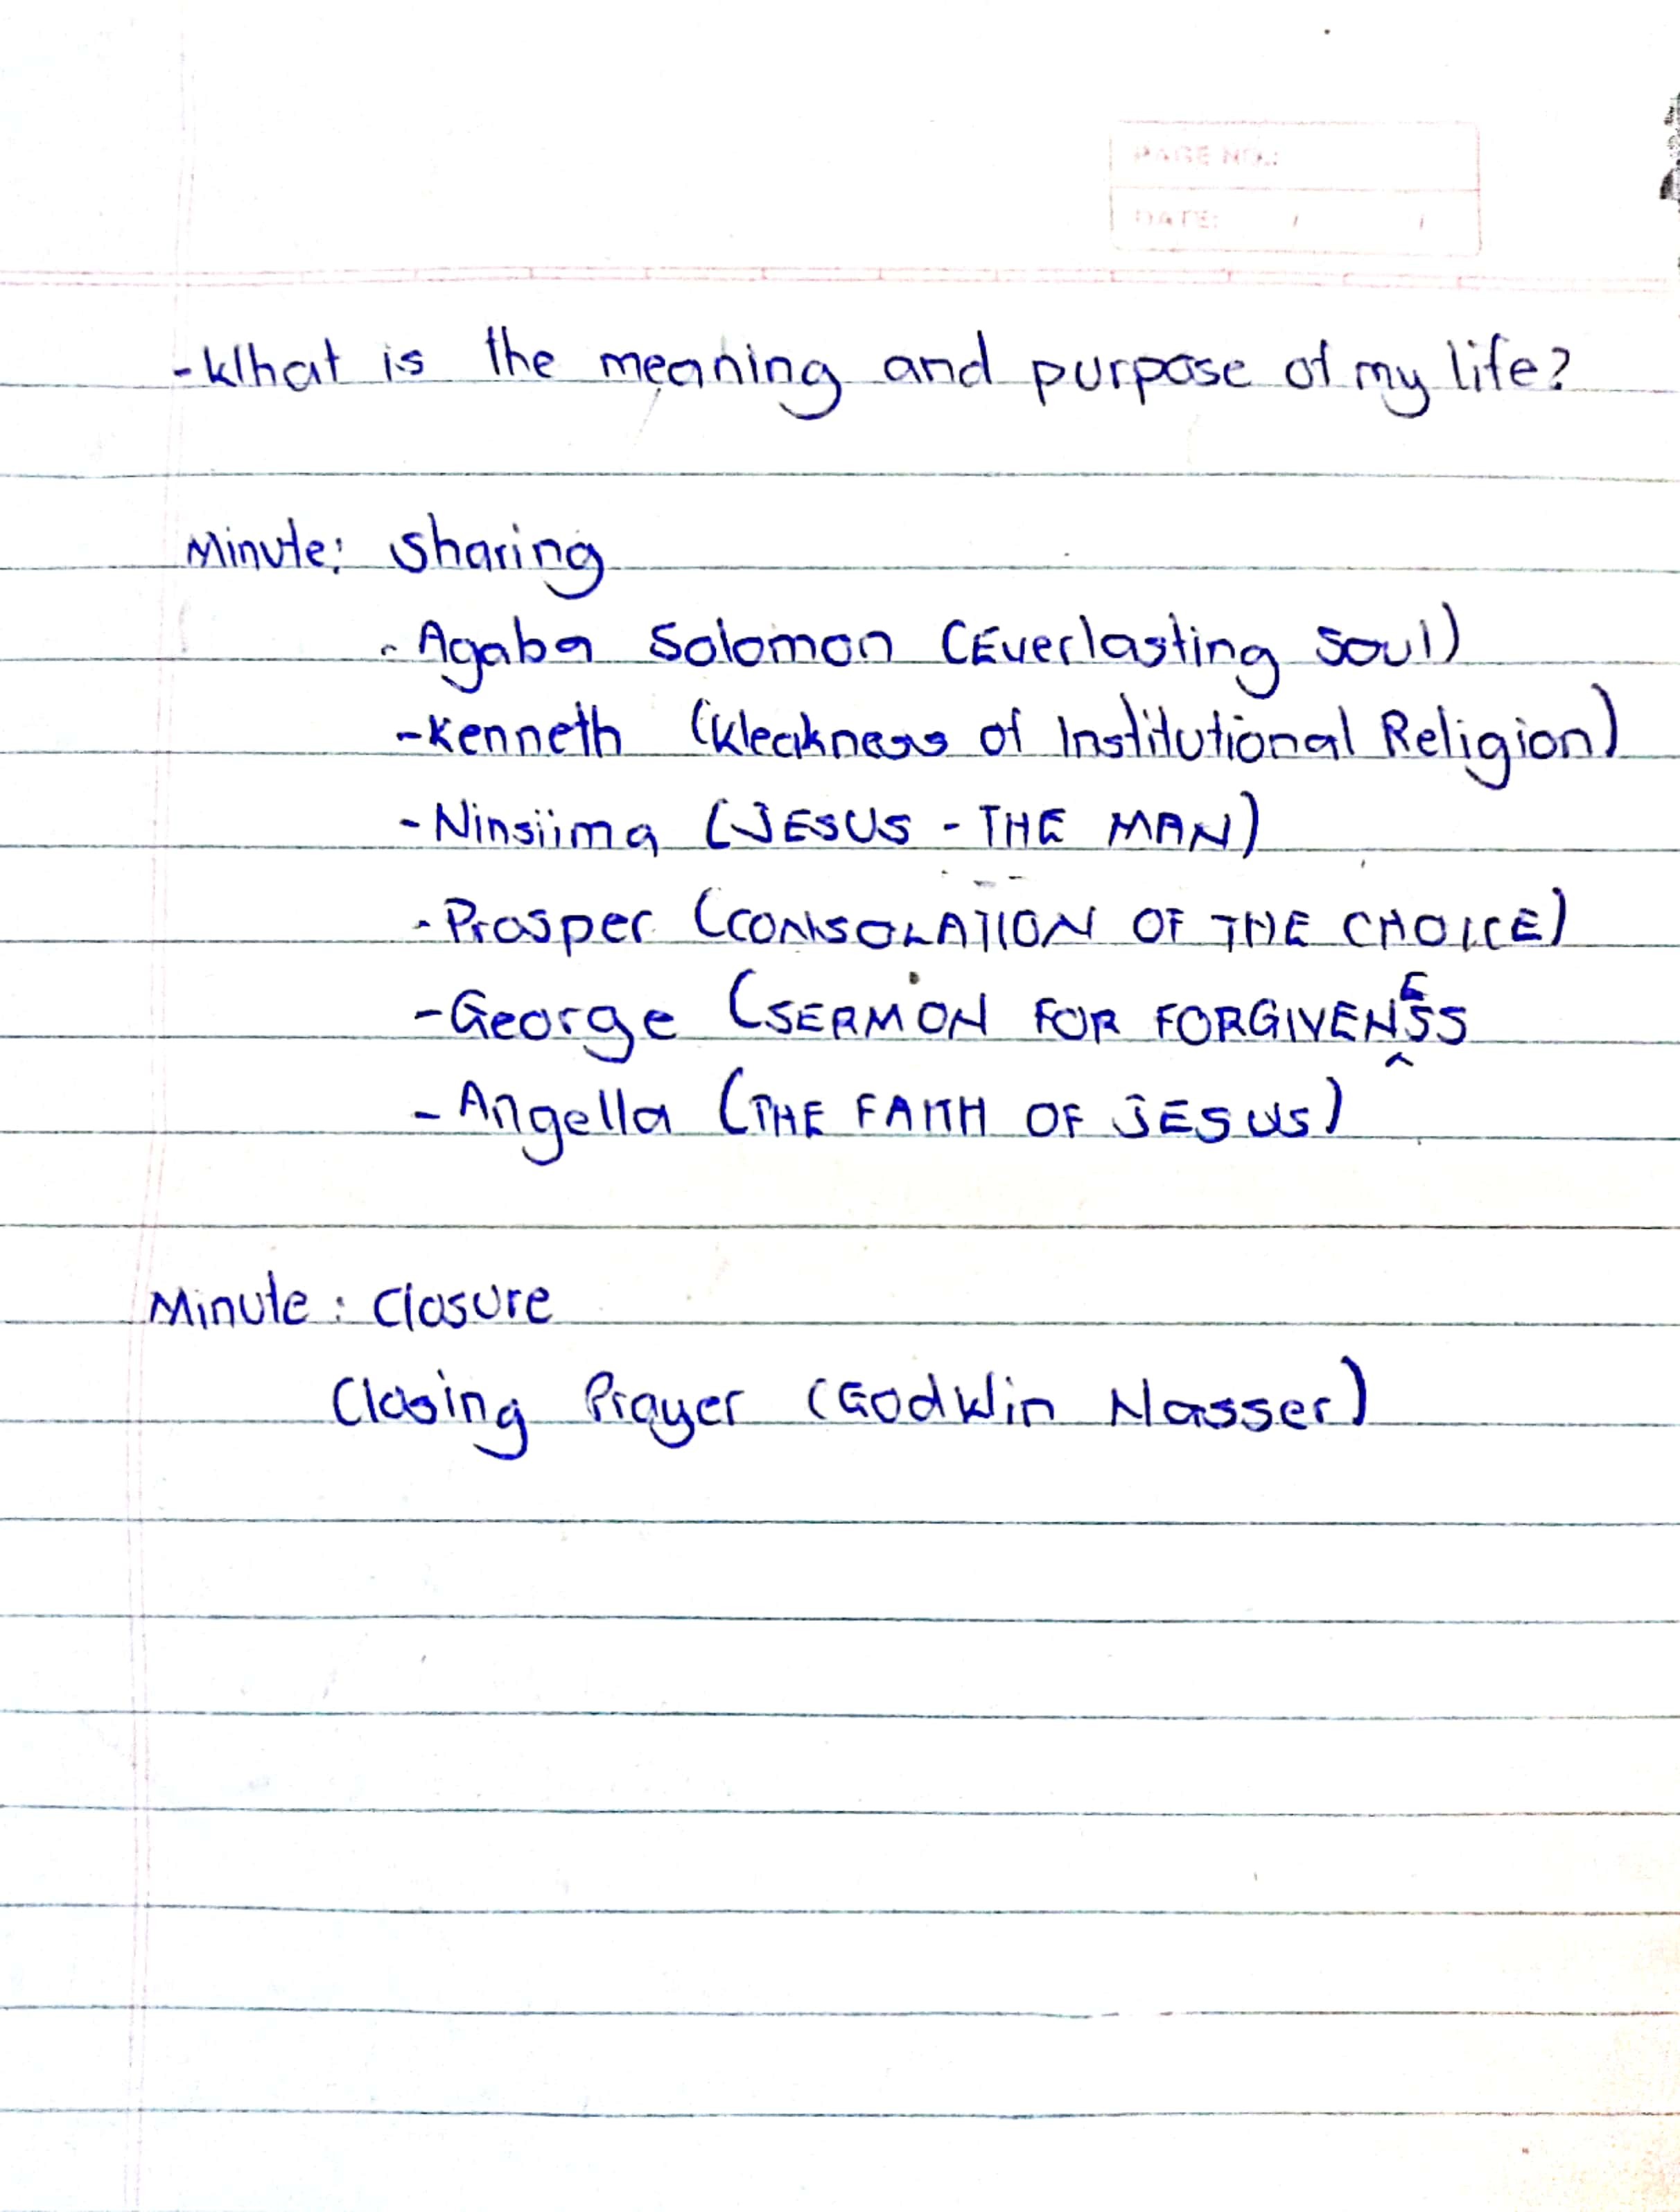 PAGE NO.:
DATE: / /
- What is the meaning and purpose of my life?
Minute: Sharing
- Agaba Solomon (Everlasting soul)
- Kenneth (Weakness of Institutional Religion)
- Ninsiima (JESUS - THE MAN)
- Prosper (CONSOLATION OF THE CHOICE)
- George (SERMON FOR FORGIVENESS
- Angella (THE FAITH OF JESUS)
Minute: Closure
Closing Prayer (Godwin Nasser)